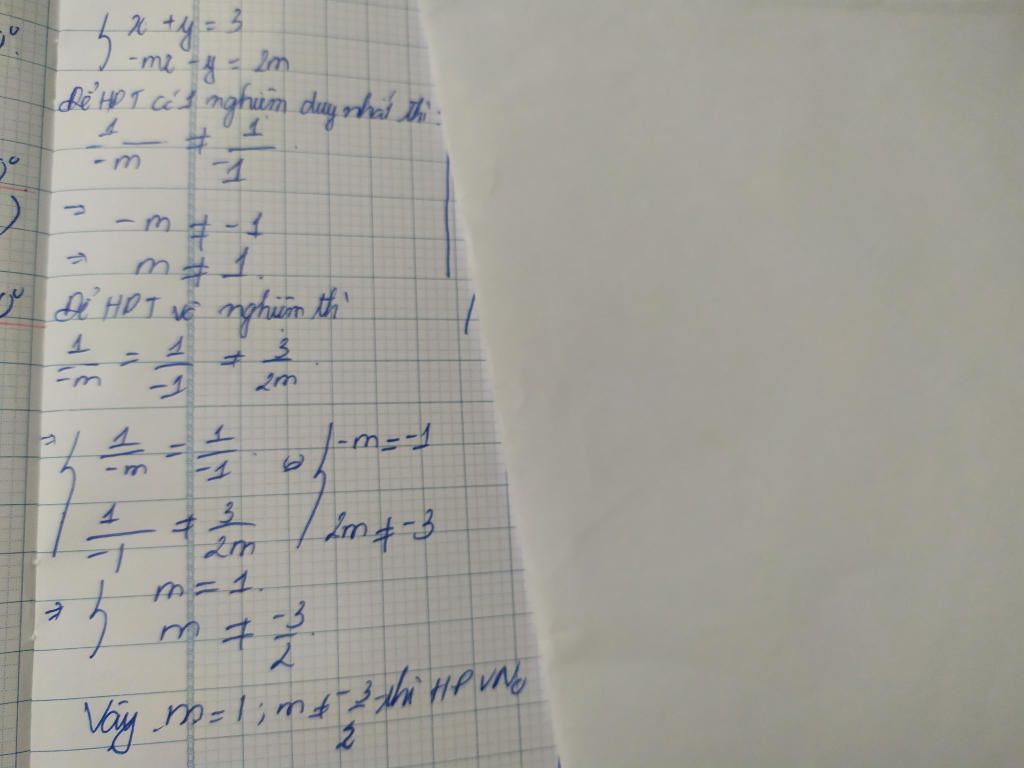 { x + y = 3
-mx - y = 2m
Để HPT có 1 nghiệm duy nhất thì:
1/-m ≠ 1/-1
⇒ -m ≠ -1
⇒ m ≠ 1.
Để HPT vô nghiệm thì
1/-m = 1/-1 ≠ 3/2m
⇒ { 1/-m = 1/-1 { -m = -1
1/-1 ≠ 3/2m 2m ≠ -3
⇒ { m = 1.
m ≠ -3/2
Vậy m = 1 ; m ≠ -3/2 thì HP VNo